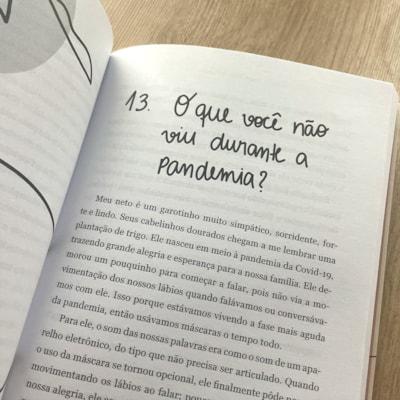 13. O que você não
viu durante a
pandemia?
Meu neto é um garotinho muito simpático, sorridente, for-
te e lindo. Seus cabelinhos dourados chegam a me lembrar uma
plantação de trigo. Ele nasceu em meio à pandemia da Covid-19,
trazendo grande alegria e esperança para a nossa família. Ele de-
morou um pouquinho para começar a falar, pois não via a mo-
vimentação dos nossos lábios quando falávamos ou conversáva-
mos com ele. Isso porque estávamos vivendo a fase mais aguda
da pandemia, então usávamos máscaras o tempo todo.
Para ele, o som das nossas palavras era como o som de um apa-
relho eletrônico, do tipo que não precisa ser articulado. Quando
o uso da máscara se tornou opcional, ele finalmente pôde nos
movimentando os lábios ao falar;
nossa alegria, ele